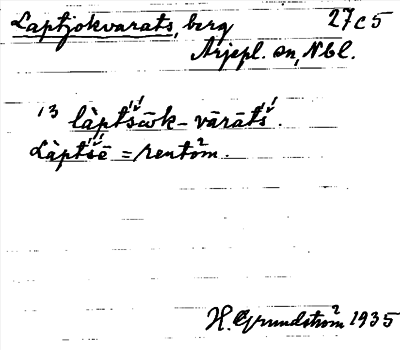 Laptjokvarats, berg 27C5
Arjepl. sn, Nbl.
13 làptsɷ̄k-vārāts.
Làptsē = rentöm.
H. Grundström 1935